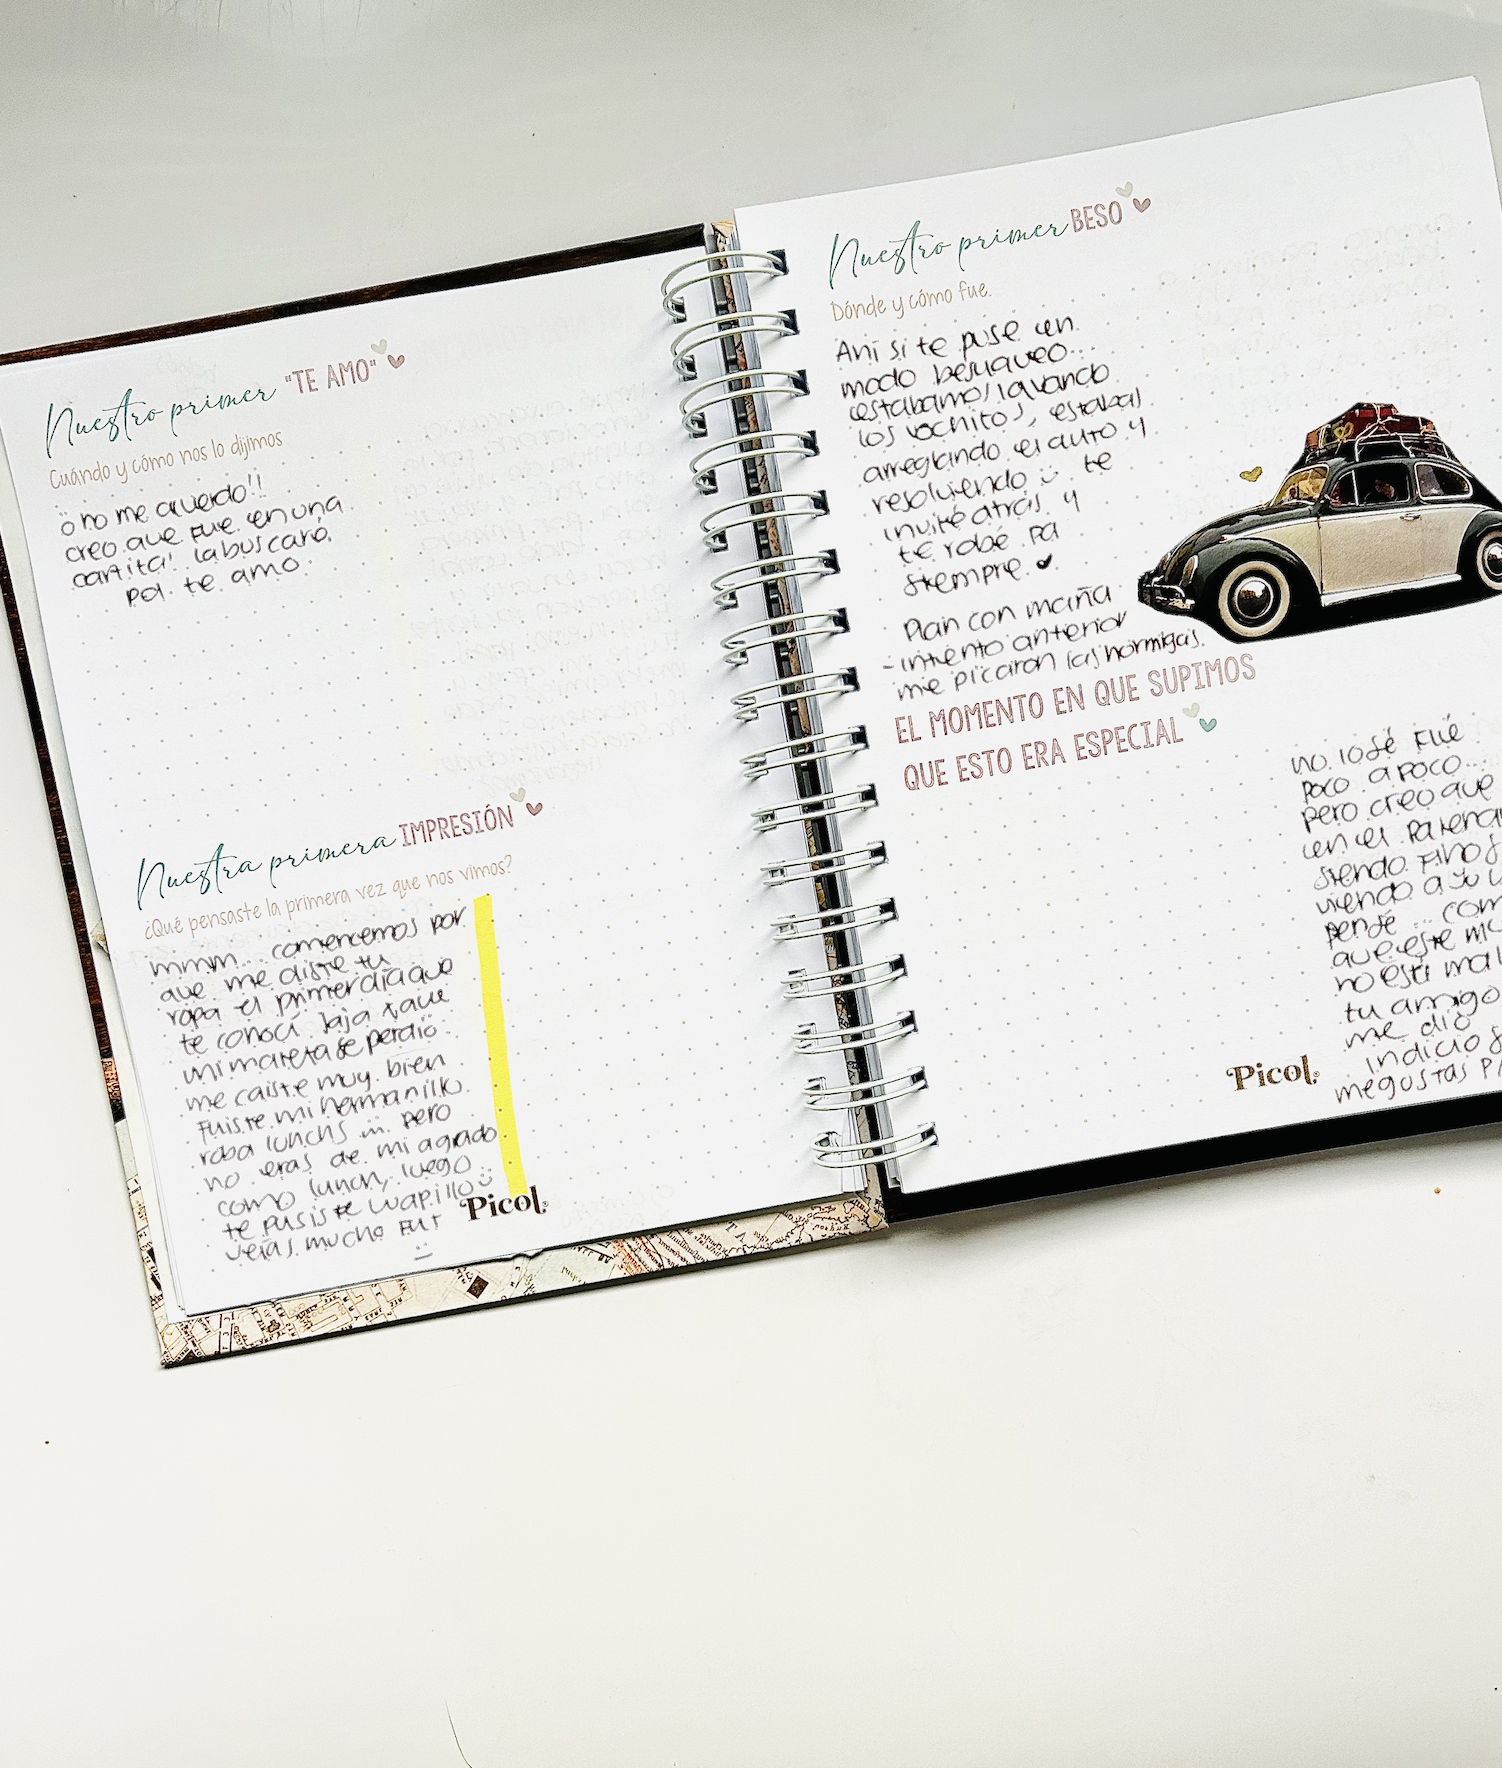 Nuestro primer "TE AMO"
Cuándo y cómo nos lo dijimos
o no me acuerdo!!
creo que fue en una
cartita! la buscaré.
pd. te amo.
Nuestra primera IMPRESIÓN
¿Qué pensaste la primera vez que nos vimos?
mmm... comencemos por
que me diste tu
ropa el primer día que
te conocí jaja y que
mi maleta se perdió
me caiste muy bien
fuiste mi hermanillo
roba lunchs ... pero
no eras de mi agrado
como lunch, luego
te pusiste wapillo
veias mucho fut
Picol
Nuestro primer BESO
Dónde y cómo fue.
Ahi si te puse en
modo besuqueo...
estabamos lavando
los vochitos, estabas
arreglando el auto y
resolviendo te
invité atrás y
te robé pa
siempre
Plan con maña
- intento anterior
me picaron las hormigas.
EL MOMENTO EN QUE SUPIMOS
QUE ESTO ERA ESPECIAL
no lo sé fué
poco a poco...
pero creo que
en el
siendo
viendo a su
pensé ... com
que este mu
no está mal
tu amigo
me dió
indicio
me gustas
Picol